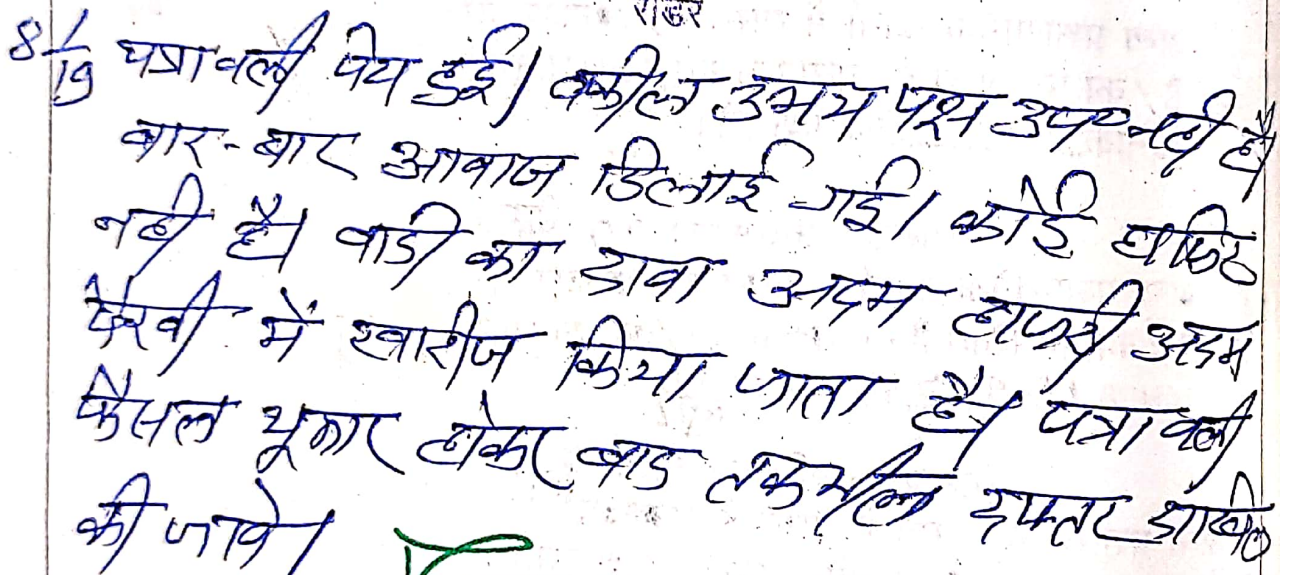 रीडर
8/1/19 पत्रावली पेश हुई। वकील उभय पक्ष उप० नहीं है
बार-बार आवाज दिलाई गई। कोई हाजिर
नही है। वादी का दावा अदम हाजरी अदम
पैरवी में खारीज किया जाता है। पत्रावली
फैसल शूमार होकर बाद तकमील दफ्तर दाखिल
की जावे।